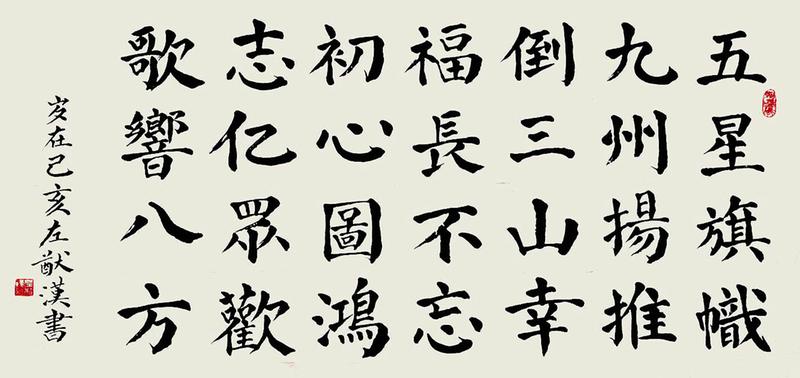 五星旗幟
九州揚推
倒三山幸
福長不忘
初心圖鴻
志亿眾歡
歌響八方
岁在己亥左猷漢書